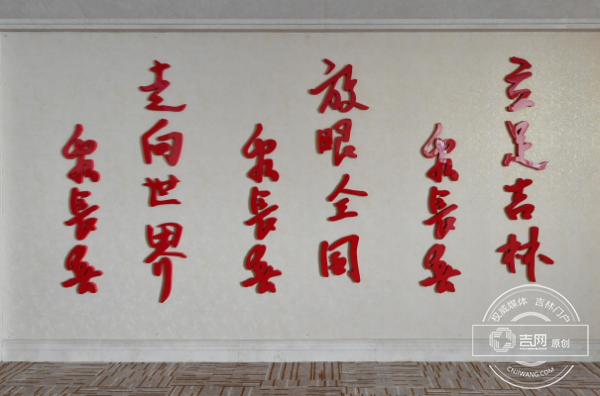 立足吉林
長春
放眼全国
長春
走向世界
長春
权威媒体 吉林门户
吉网 原创
CNJIWANG.COM